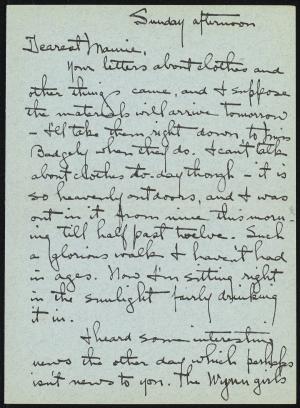 Sunday afternoon
Dearest Mamie,
Your letters about clothes and
other things came, and I suppose
the materials will arrive tomorrow
- I'll take them right down to Miss
Badgely when they do. I can't talk
about clothes to-day though - it is
so heavenly outdoors, and I was
out in it from nine this morn
ing till half past twelve. Such
a glorious walk I haven't had
in ages. Now I'm sitting right
in the sunlight fairly drinking
it in.
I heard some interesting
news the other day which perhaps
isn't news to you. The Wynn girls